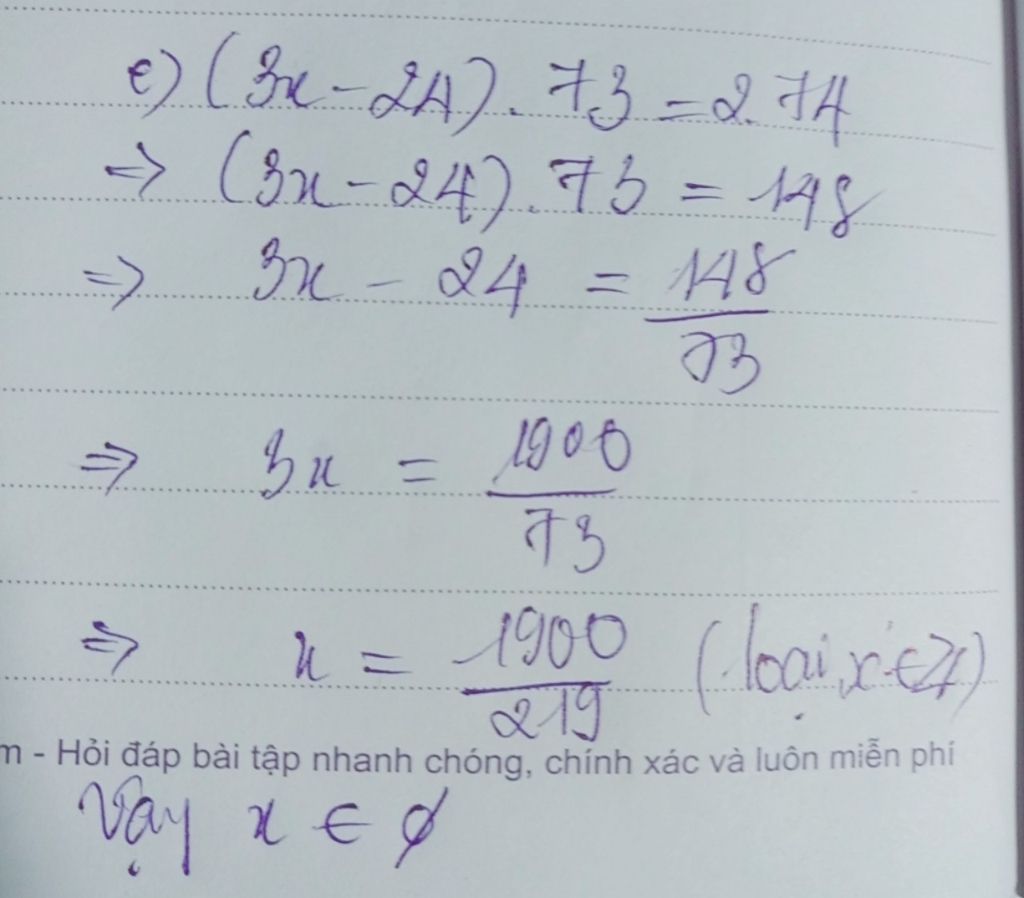 e) (3x - 24) . 73 = 2. 74
=> (3x - 24) . 73 = 148
=> 3x - 24 = 148/73
=> 3x = 1900/73
=> x = 1900/219 (loại, x ∈ Z)
m - Hỏi đáp bài tập nhanh chóng, chính xác và luôn miễn phí
Vậy x ∈ ∅